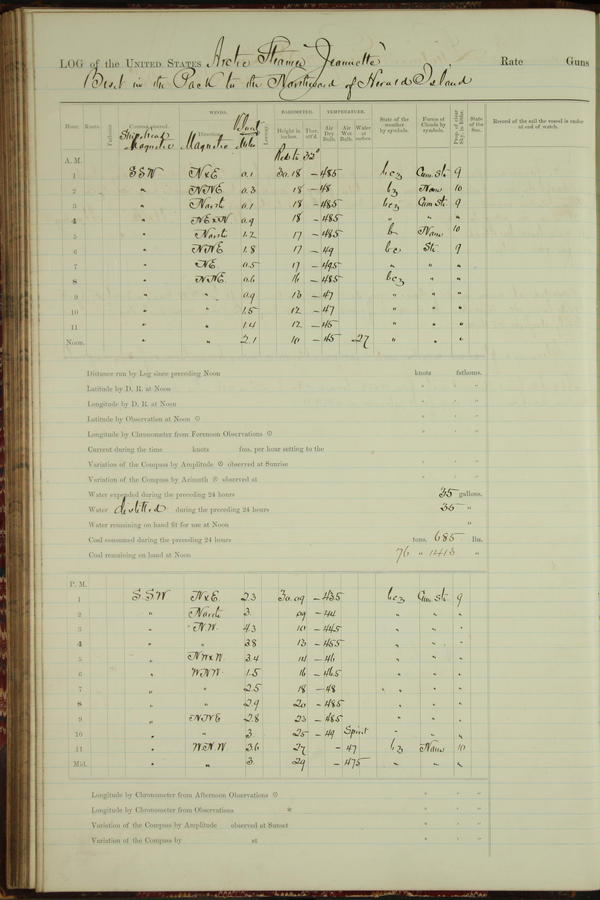 LOG of the UNITED STATES Arctic Steamer "Jeannette" Rate Guns
Beset in the Pack to the Northward of Herald Island
WINDS. BAROMETER. TEMPERATURE.
Hour. Knots. Fathoms. Courses steered. Direction. Leeway. Height in inches. Ther. att'd. Air Dry Bulb. Air Wet Bulb. Water at surface. State of the weather by symbols. Forms of Clouds by symbols. Prop. of clear Sky, in tenths. State of the Sea. Record of the sail the vessel is under at end of watch.
Ship's head Magnetic Magnetic Miles
A. M. Red. to 32°
1 SSW NxE 0.1 30.18 -48.5 bcz Cum. St. 9
2 " NNE 0.3 18 -48 bz Naw 10
3 " North 0.1 18 -48.5 bcz Cum St. 9
4 " NExN 0.9 18 -48.5 " " "
5 " North 1.2 17 -48.5 b Naw 10
6 " NNE 1.8 17 -49 bc St. 9
7 " NE 0.5 17 -49.5 " " "
8 " NNE 0.6 16 -48.5 bcz " "
9 " " 0.9 13 -47 " " "
10 " " 1.5 12 -47 " " "
11 " " 1.4 12 -45 " " "
Noon. " " 2.1 10 -45 -27 " " "
Distance run by Log since preceding Noon knots fathoms.
Latitude by D. R. at Noon ° ' "
Longitude by D. R. at Noon ° ' "
Latitude by Observation at Noon ° ' "
Longitude by Chronometer from Forenoon Observations ° ' "
Current during the time knots fms. per hour setting to the
Variation of the Compass by Amplitude observed at Sunrise ° ' "
Variation of the Compass by Azimuth observed at ° ' "
Water expended during the preceding 24 hours 35 gallons.
Water distilled during the preceding 24 hours 35 "
Water remaining on hand fit for use at Noon "
Coal consumed during the preceding 24 hours tons, 685 lbs.
Coal remaining on hand at Noon 76 " 1413 "
P. M.
1 SSW NxE. 2.3 30.09 -43.5 bcz Cum. St. 9
2 " North 3. 09 -44 " " "
3 " NW. 4.3 10 -44.5 " " "
4 " " 3.8 13 -45.5 " " "
5 " NWxN. 3.4 14 -46 " " "
6 " WNW. 1.5 16 -46.5 " " "
7 " " 2.5 18 -48 " " "
8 " " 2.9 20 -48.5 " " "
9 " NNE 2.8 23 -48.5 " " "
10 " " 3. 25 -49 Spirit " " "
11 " WNW 3.6 27 -47 bz Naw 10
Mid. " " 3 29 -47.5 " " "
Longitude by Chronometer from Afternoon Observations ° ' "
Longitude by Chronometer from Observations ° ' "
Variation of the Compass by Amplitude observed at Sunset ° ' "
Variation of the Compass by at ° ' "